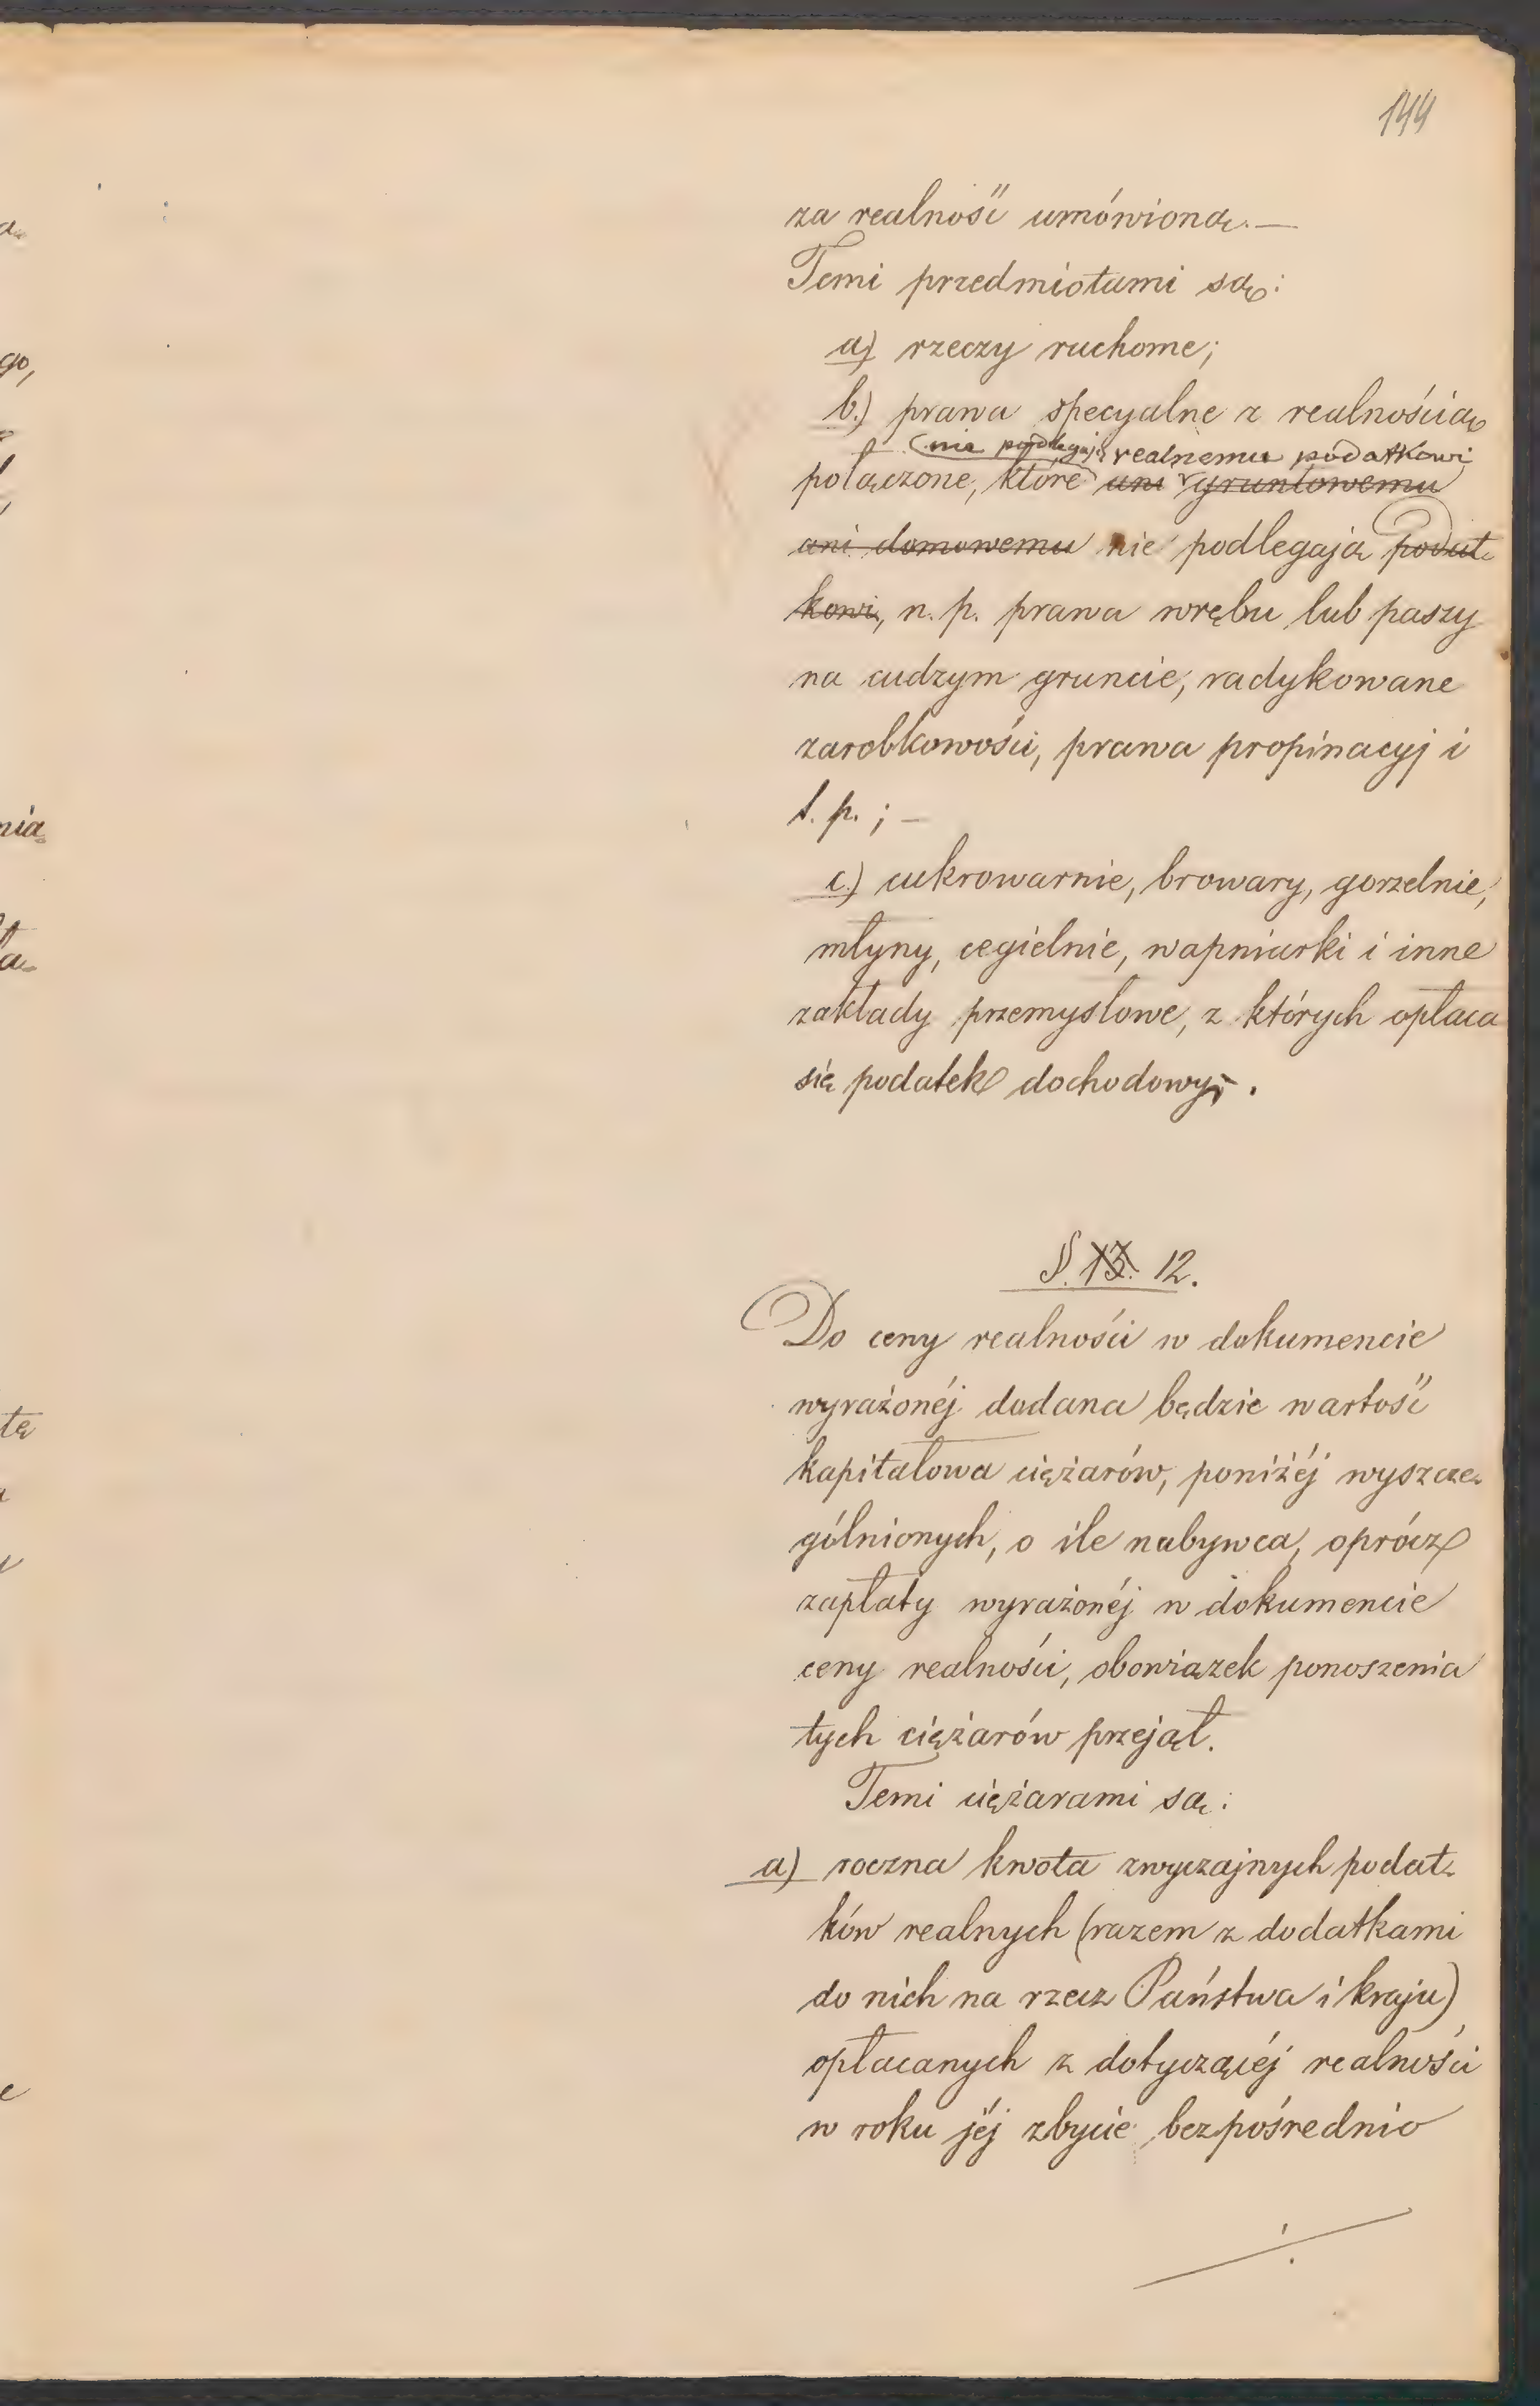 144
za realność umówioną. —
Temi przedmiotami są:
a) rzeczy ruchome;
b.) prawa specyalne z realnością
nie podlegają realnemu podatkowi
połączone, które ani gruntowemu
ani domowemu nie podlegają podat-
kowi, n. p. prawa wrębu lub paszy
na cudzym gruncie, radykowane
zarobkowości, prawa propinacyj i
t. p. ; —
c.) cukrowarnie, browary, gorzelnie,
młyny, cegielnie, wapniarki i inne
zakłady przemysłowe, z których opłaca
się podatek dochodowy.
§. 13. 12.
Do ceny realności w dokumencie
wyrażonéj dodana będzie wartość
kapitałowa ciężarów, poniżéj wyszcze-
gólnionych, o ile nabywca, oprócz
zapłaty wyrażonéj w dokumencie
ceny realności, obowiązek ponoszenia
tych ciężarów przejął.
Temi ciężarami są:
a) roczna kwota zwyczajnych podat-
ków realnych (razem z dodatkami
do nich na rzecz Państwa i kraju)
opłacanych z dotyczącéj realności
w roku jéj zbycie bezpośrednio